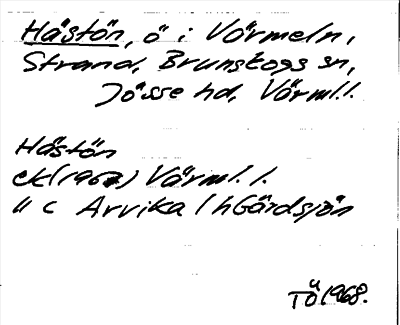 Hästön, ö i Värmeln,
Strand, Brunskogs sn,
Jösse hd, Värml.
Hästön
ck (1967) Värml. l.
u c Arvika l h Gårdsjön
TÖ 1968.